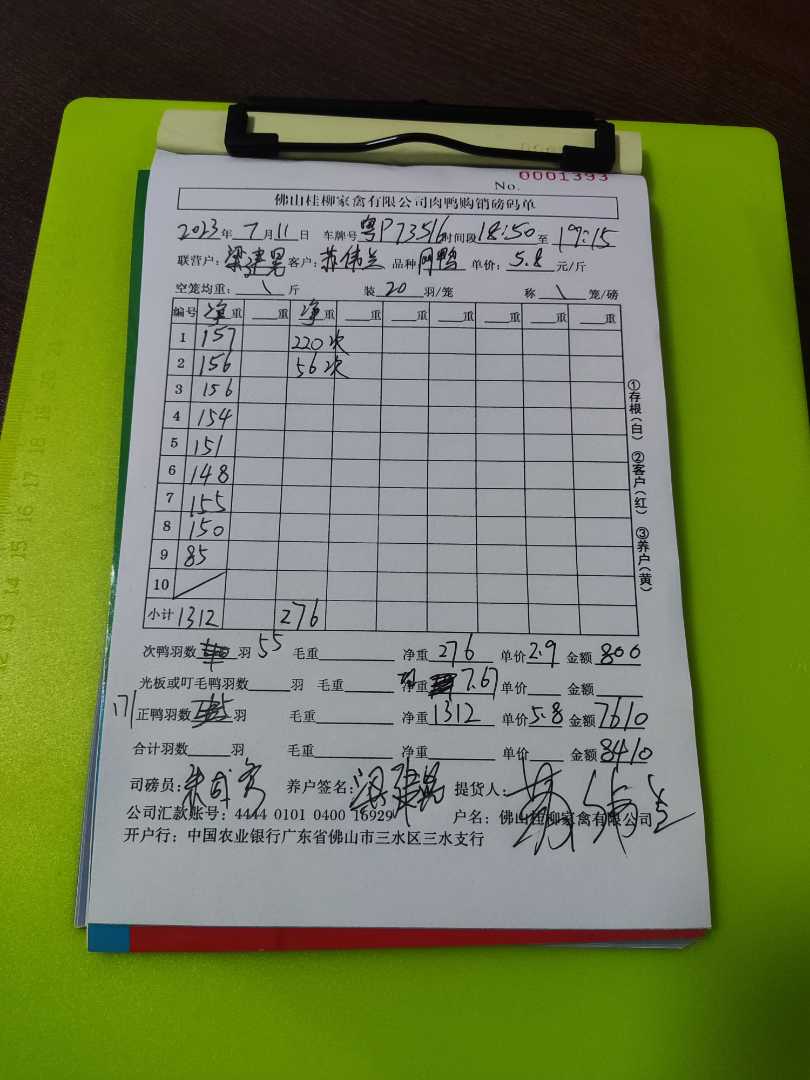 No. 0001393
佛山桂柳家禽有限公司肉鸭购销磅码单
2023年7月11日 车牌号粤P73516时间段18:50至19:15
联营户:梁建晃 客户:苏伟兰 品种 网鸭 单价:5.8元/斤
空笼均重:\斤 装20羽/笼 称\笼/磅
编号 净重 重 净重 重 重 重 重 重 重
1 157 220次
2 156 56次
3 156
4 154
5 151
6 148
7 155
8 150
9 85
10
小计 1312 276
次鸭羽数 羽 55 毛重 净重276 单价2.9 金额800
光板或叮毛鸭羽数 羽 毛重 净重 7.67 单价 金额
171 正鸭羽数 羽 毛重 净重1312 单价5.8 金额7610
合计羽数 羽 毛重 净重 单价 金额8410
司磅员: 养户签名:梁建晃 提货人:苏伟兰
公司汇款账号:4444 0101 0400 16929 户名:佛山桂柳家禽有限公司
开户行:中国农业银行广东省佛山市三水区三水支行
①存根(白) ②客户(红) ③养户(黄)